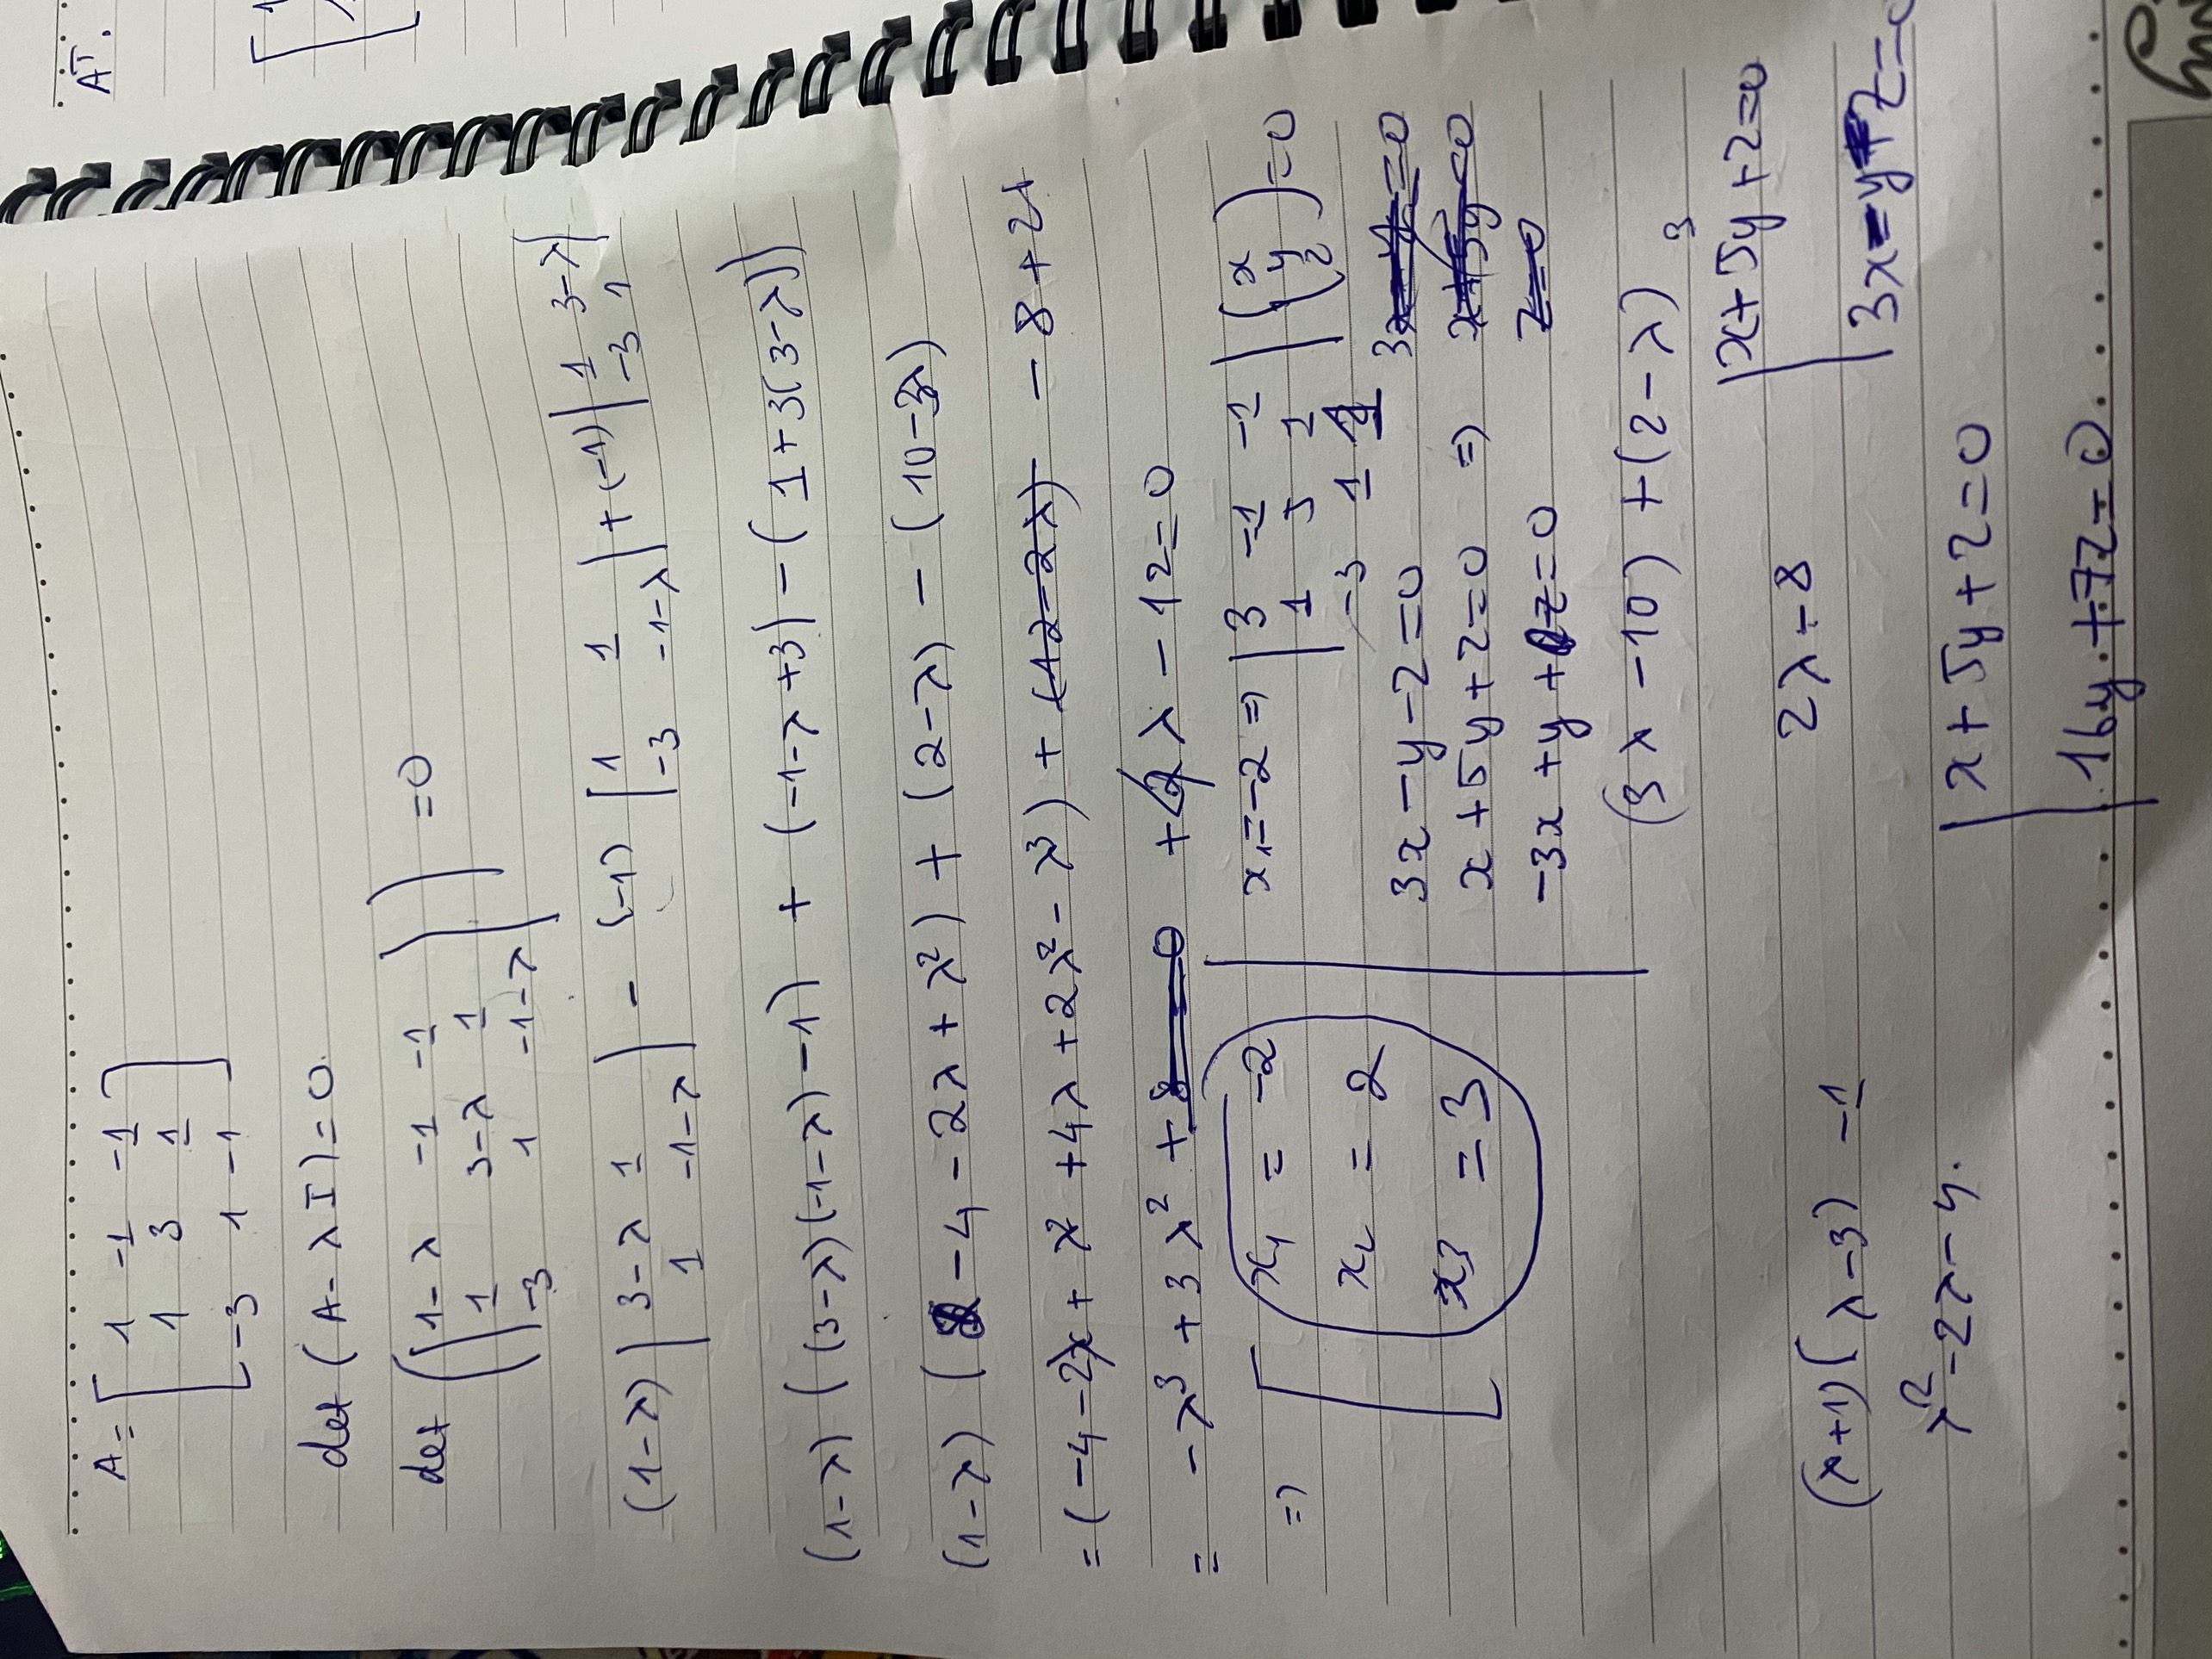 Aᵀ.
A = [ 1 -1 -1
1 3 1
-3 1 -1 ]
det (A - λI) = 0.
det ( | 1-λ -1 -1
1 3-λ 1
-3 1 -1-λ | ) = 0
(1-λ) | 3-λ 1 | - (-1) | 1 1 | + (-1) | 1 3-λ |
| 1 -1-λ | | -3 -1-λ | | -3 1 |
(1-λ) ((3-λ)(-1-λ) -1) + (-1-λ+3) - (1+3(3-λ))
(1-λ) ( -4 -2λ + λ²) + (2-λ) - (10-3λ)
= (-4-2λ + λ² +4λ +2λ² - λ³) + (12-2λ) - 8+2λ
= -λ³ + 3λ² + 8 = 0 + 4λ - 12 = 0
=> [ x₁ = -2
x₂ = 2
x₃ = 3
x₁ = -2 => | 3 -1 -1 | ( x
1 5 1 y
-3 1 1 | z ) = 0
3x - y - z = 0
x + 5y + z = 0 =>
-3x + y + z = 0
z = 0
(3λ - 10) + (2 - λ)
2λ - 8
| x + 5y + z = 0
| 3x - y - z = 0
(λ+1)(λ-3) -1
λ² -2λ -4.
| x + 5y + z = 0
| 16y + 7z = 0